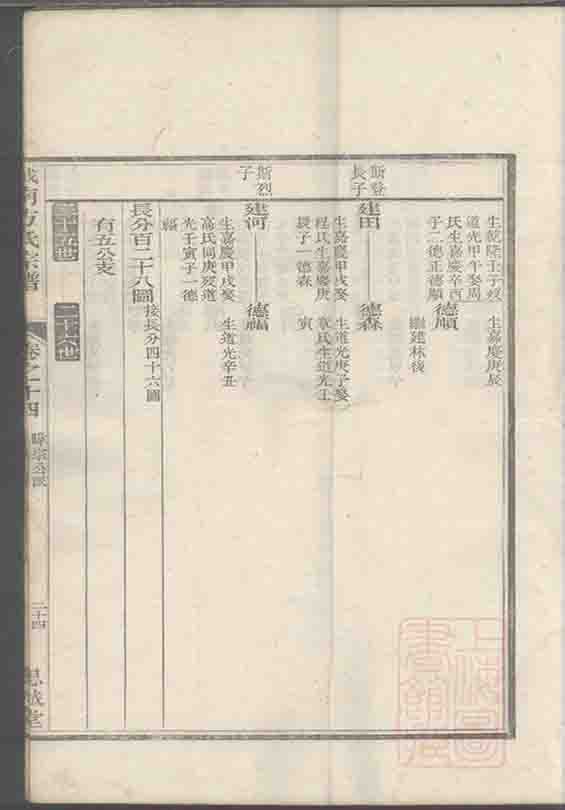 生乾隆壬子歿
道光甲午娶周
氏生嘉慶辛酉
子二德正德順
德順
生嘉慶庚辰
繼建林後
斯登
長子
建田
德森
生嘉慶甲戌娶
程氏生嘉慶庚
辰子一德森
生道光庚子娶
章氏生道光壬
寅
斯烈
子
建河
德福
生嘉慶甲戌娶
高氏同庚歿道
光壬寅子一德
福
生道光辛丑
長分百二十八圖
接長分四十六圖
有五公支
二十五世
二十六世
南方氏宗譜
卷之十四
二十四
思誠堂
上海圖
書館藏